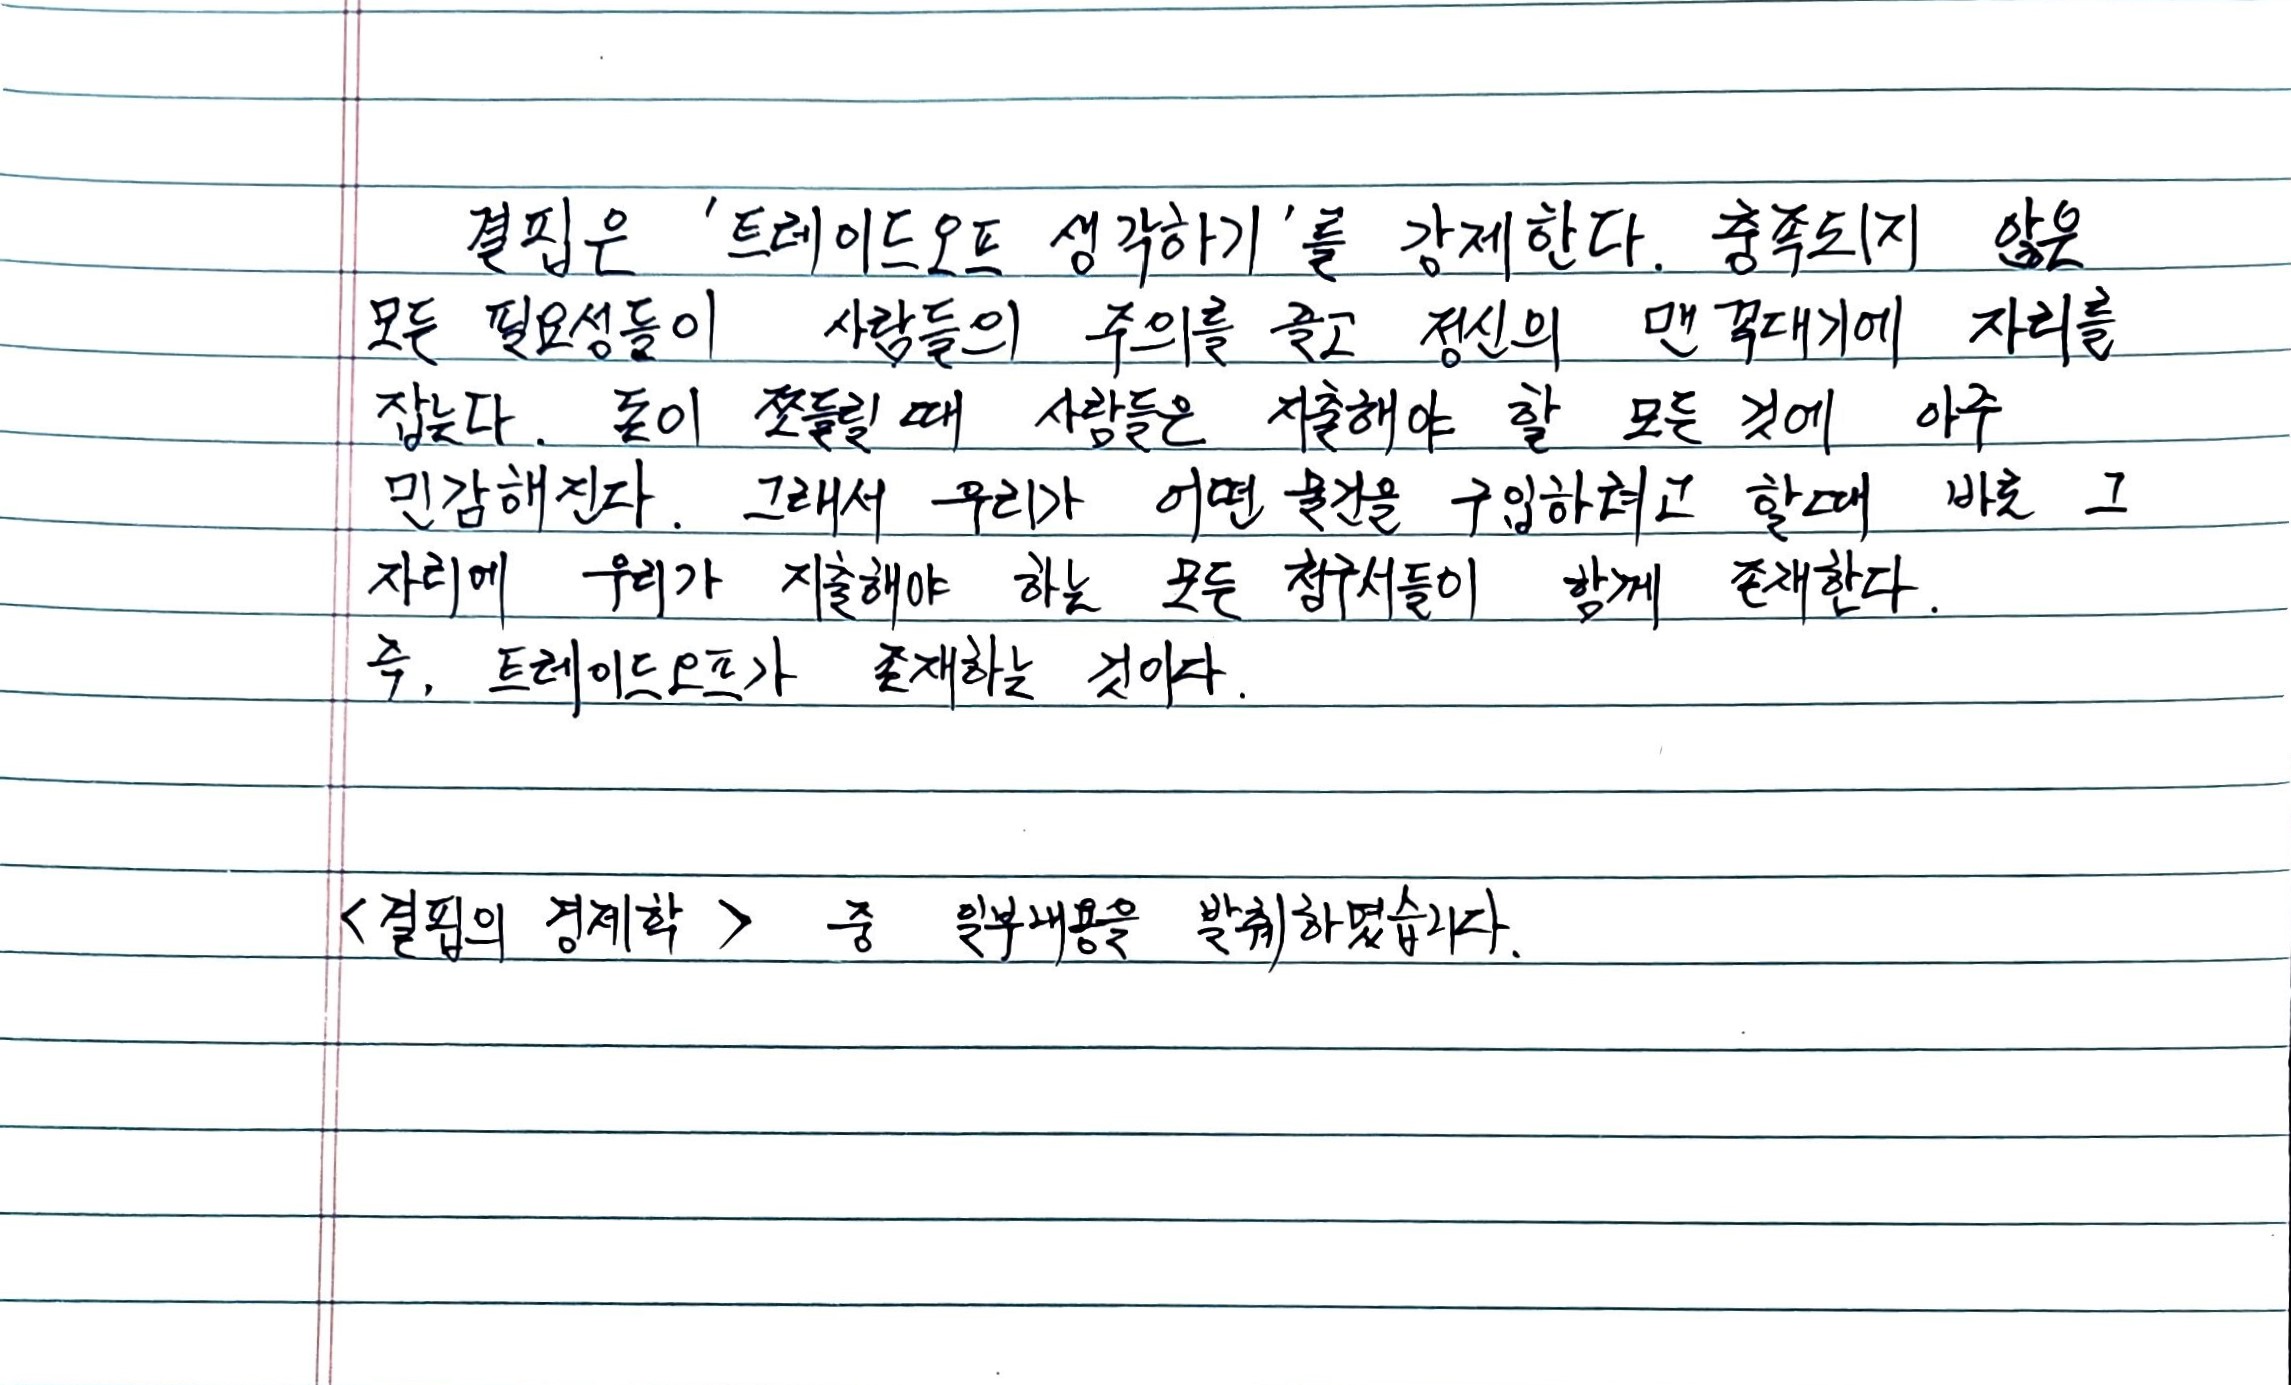 결핍은 '트레이드오프 생각하기'를 강제한다. 충족되지 않은
모든 필요성들이 사람들의 주의를 끌고 정신의 맨 꼭대기에 자리를
잡는다. 돈이 쪼들릴 때 사람들은 지출해야 할 모든 것에 아주
민감해진다. 그래서 우리가 어떤 물건을 구입하려고 할때 바로 그
자리에 우리가 지출해야 하는 모든 청구서들이 함께 존재한다.
즉, 트레이드오프가 존재하는 것이다.
<결핍의 경제학> 중 일부내용을 발췌하였습니다.